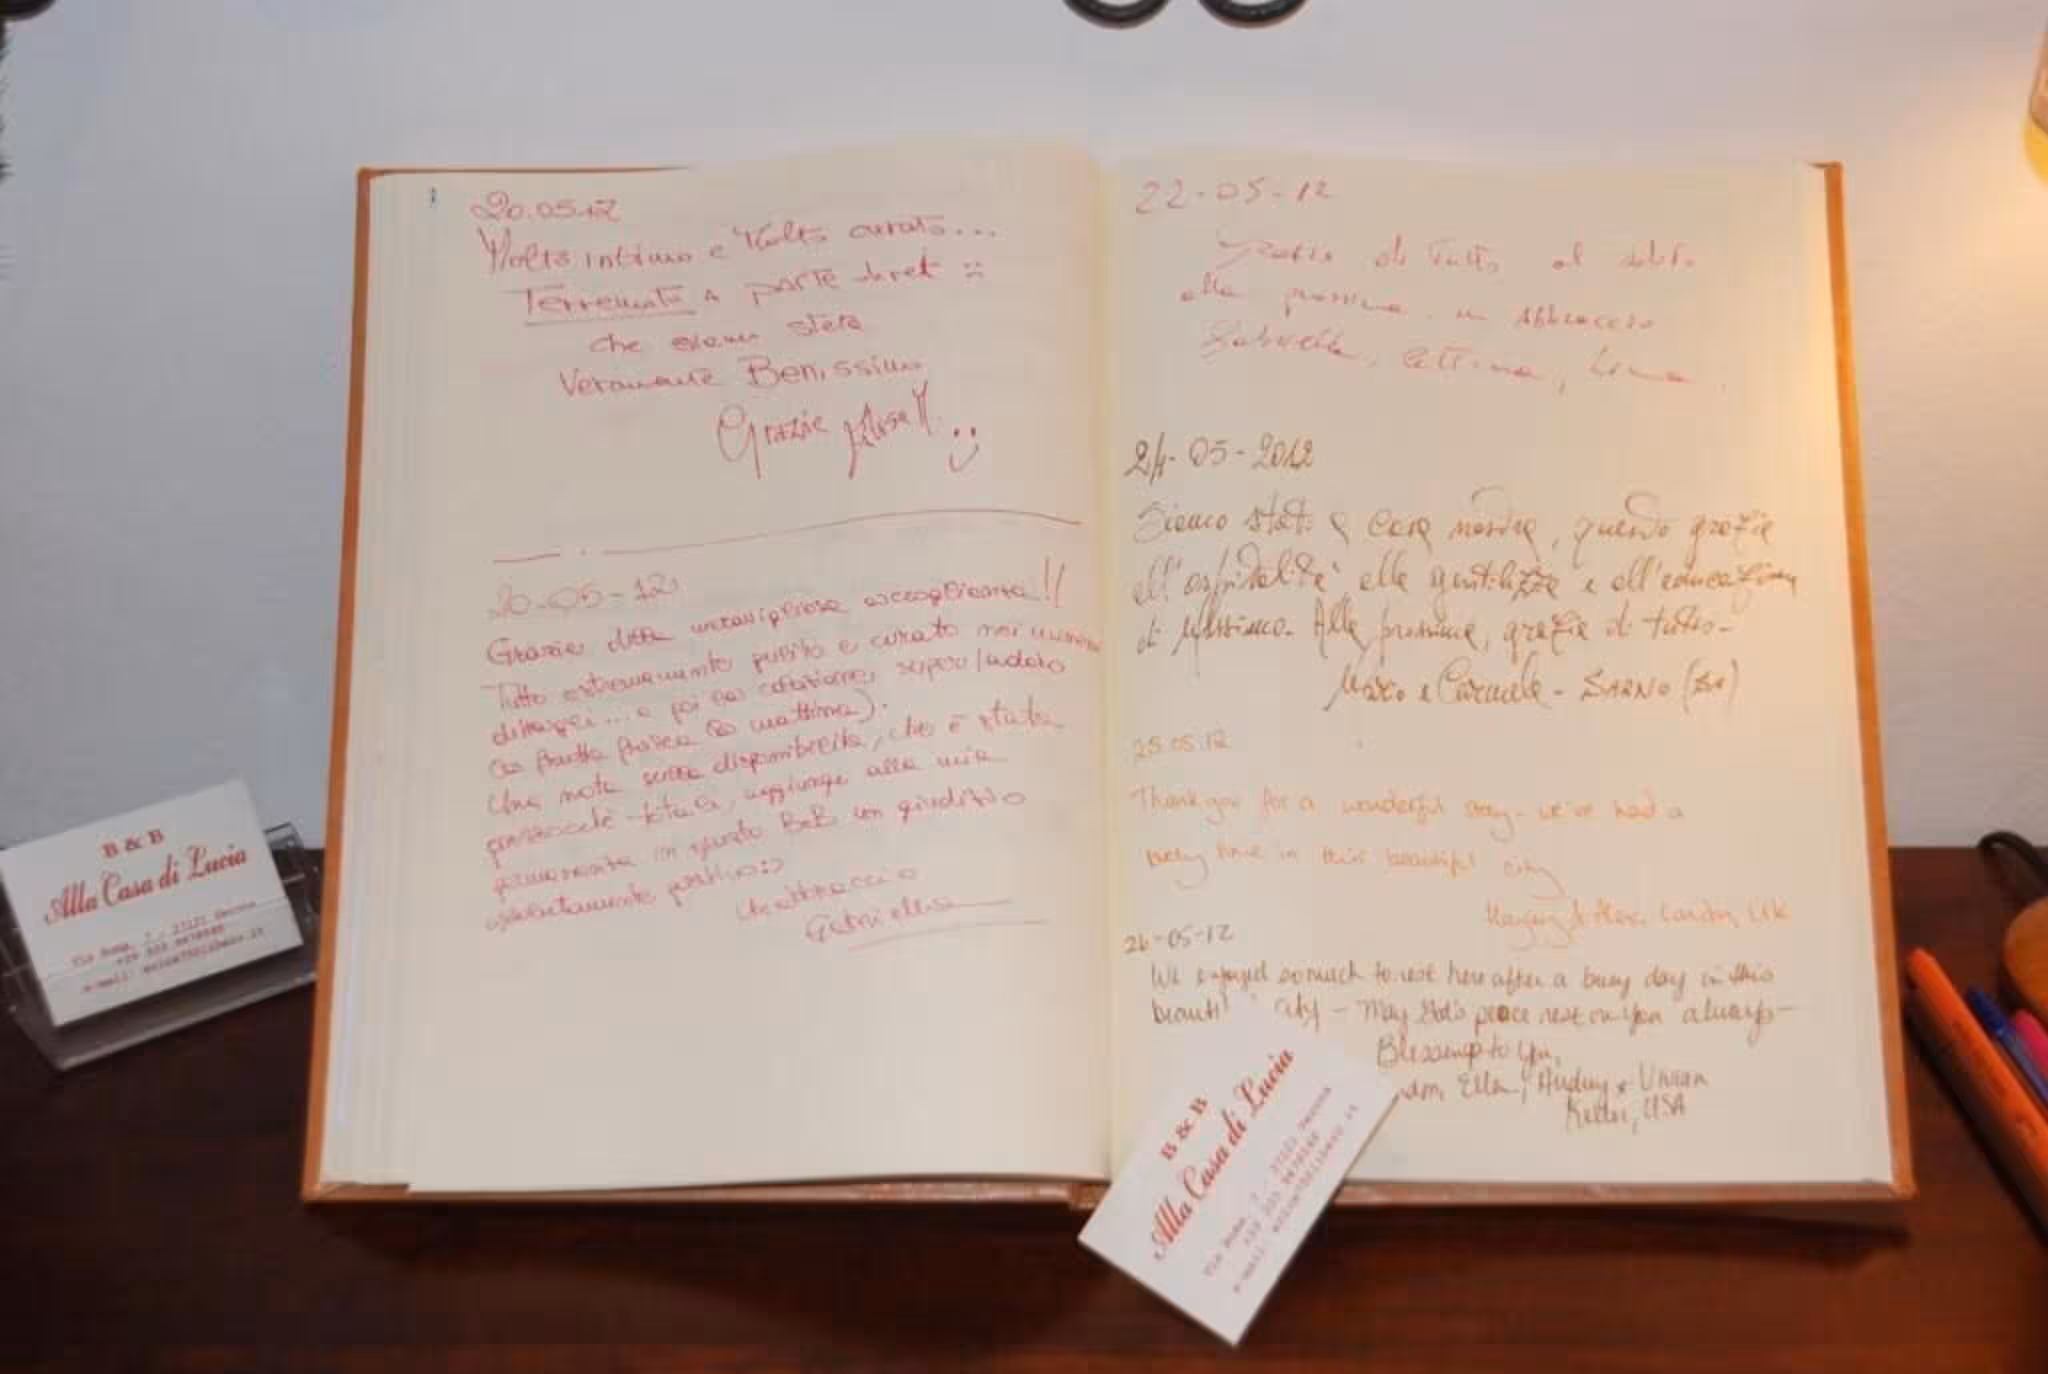 20.05.12
Molto intimo e Molto curato...
Terremoto a parte
che siamo state
Veramente Benissimo
Grazie
20-05-12
Grazie della meravigliosa accoglienza!!
Tutto estremamente pulito e curato nei minimi
dettagli... e poi la colazione, super/adoro
la frutta fresca la mattina).
Una nota sulla disponibilità, che è stata
pressoché totale, aggiunge alla mia
permanenza in questo B&B un giudizio
assolutamente positivo:)
Un abbraccio
22-05-12
Grazie di tutto
alla prossima. un abbraccio
24-05-2012
Siamo stati a casa nostra, questo grazie
all'ospitalità alla gentilezza e all'educazione
di Massimo. Alla prossima, grazie di tutto-
Marco e Carmela - SARNO (SA)
25.05.12
Thank you for a wonderful stay - we've had a
lovely time in this beautiful city
London, UK
26-05-12
We enjoyed so much to rest here after a busy day in this
city - May God's peace rest on you always-
Blessings to you,
Ella, Audrey + Vivian
Keller, USA
B & B
Alla Casa di Lucia
Via Roma, 37121 Verona
B & B
Alla Casa di Lucia
Via Roma, 37121 Verona